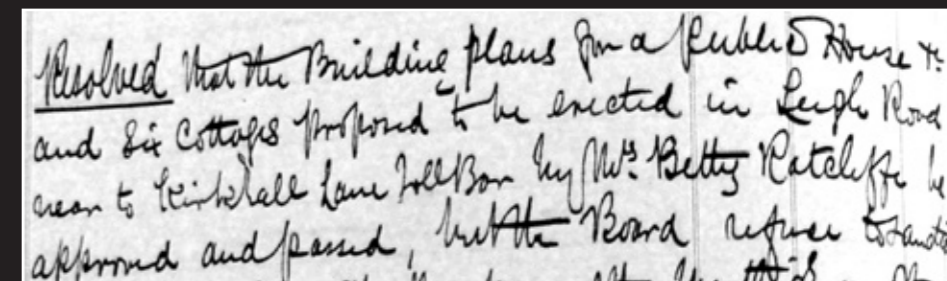 Resolved that the Building plans for a Public House &c
and Six Cottages proposed to be erected in Leigh Road
near to Kirkhall Lane Toll Bar by Mrs. Betty Ratcliffe be
approved and passed, but the Board refuse to